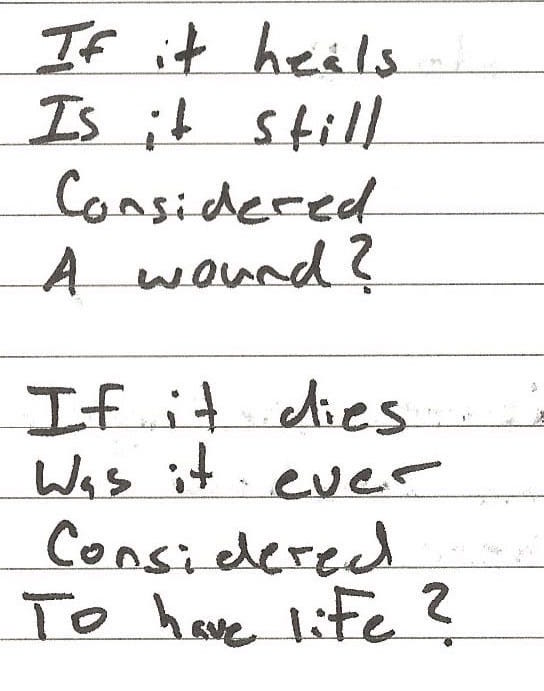 If it heals
Is it still
Considered
A wound?
If it dies
Was it ever
Considered
To have life?